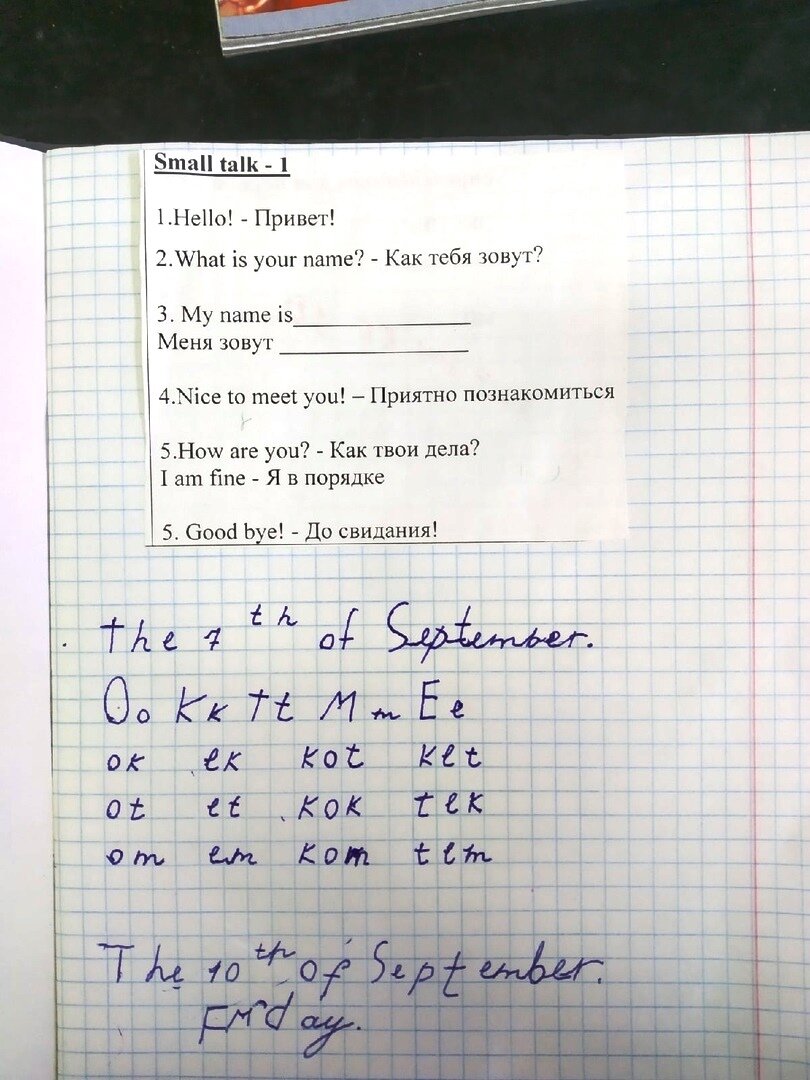 Small talk - 1
1.Hello! - Привет!
2.What is your name? - Как тебя зовут?
3. My name is________________
Меня зовут _________________
4.Nice to meet you! – Приятно познакомиться
5.How are you? - Как твои дела?
I am fine - Я в порядке
5. Good bye! - До свидания!
The 7th of September.
Oo Kk Tt Mm Ee
ok ek kot ket
ot et kok tek
om em kom tem
The 10th of September.
Friday.